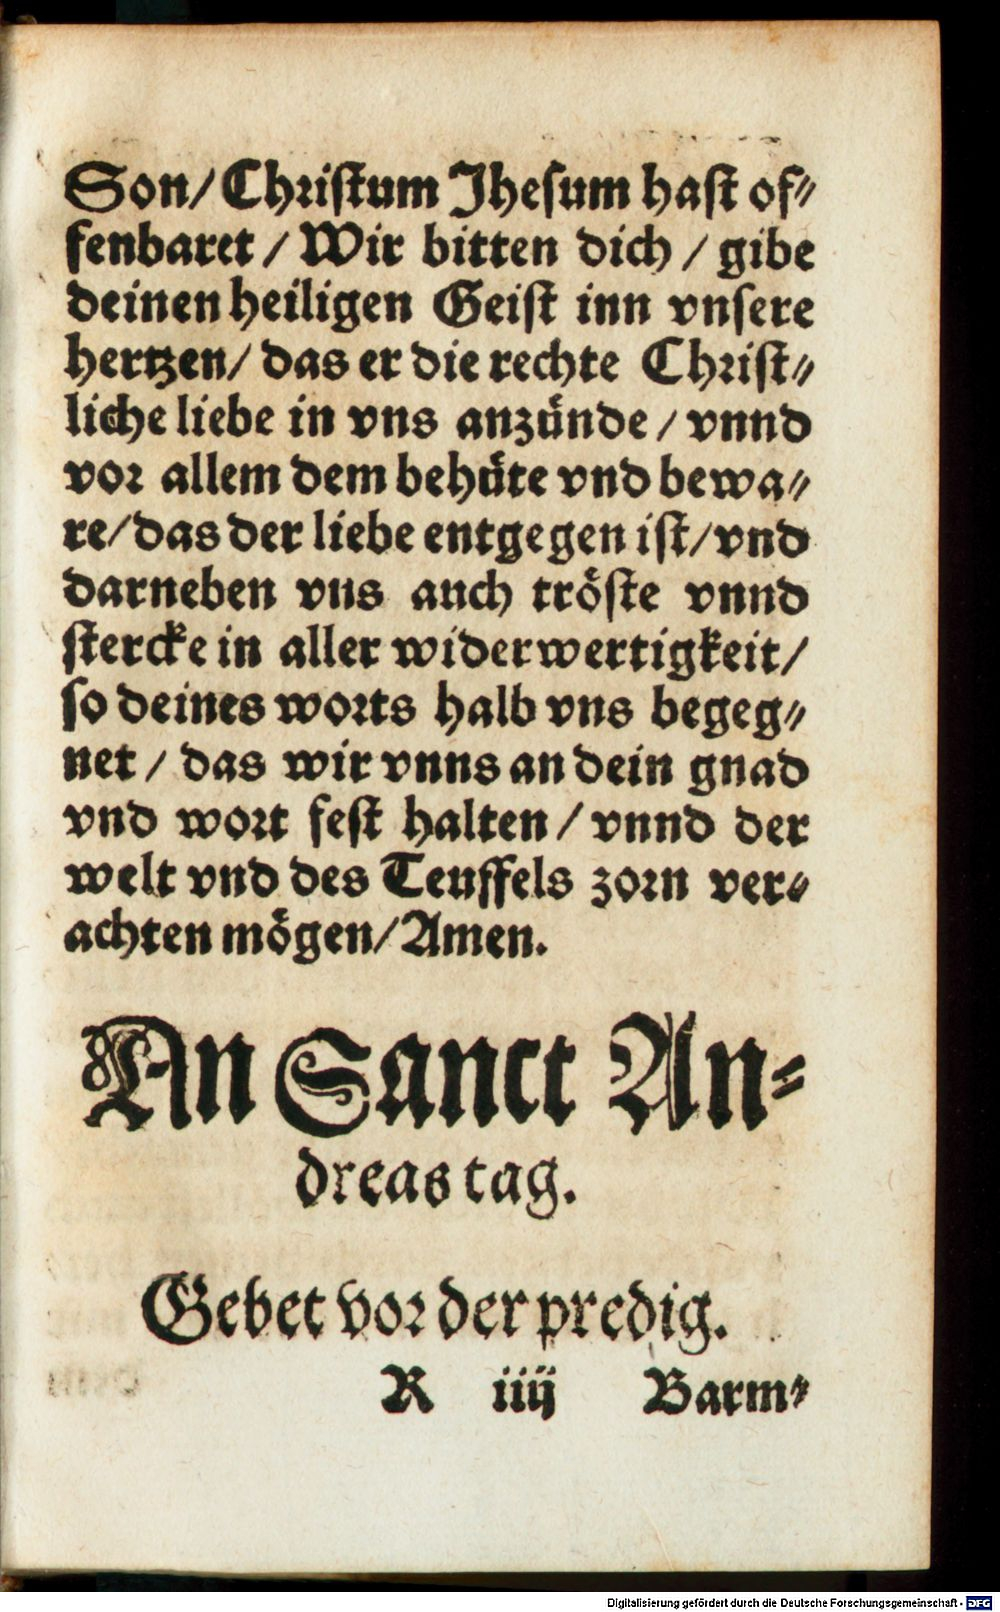 Son/ Christum Jhesum hast of⸗
fenbaret / Wir bitten dich / gibe
deinen heiligen Geist inn vnsere
hertzen/ das er die rechte Christ⸗
liche liebe in vns anzünde / vnnd
vor allem dem behüte vnd bewa⸗
re/ das der liebe entgegen ist/ vnd
darneben vns auch tröste vnnd
stercke in aller widerwertigkeit/
so deines worts halb vns begeg⸗
net / das wir vnns an dein gnad
vnd wort fest halten / vnnd der
welt vnd des Teuffels zorn ver⸗
achten mögen/ Amen.
An Sanct An⸗
dreas tag.
Gebet vor der predig.
R iiij Barm⸗
Digitalisierung gefördert durch die Deutsche Forschungsgemeinschaft - DFG